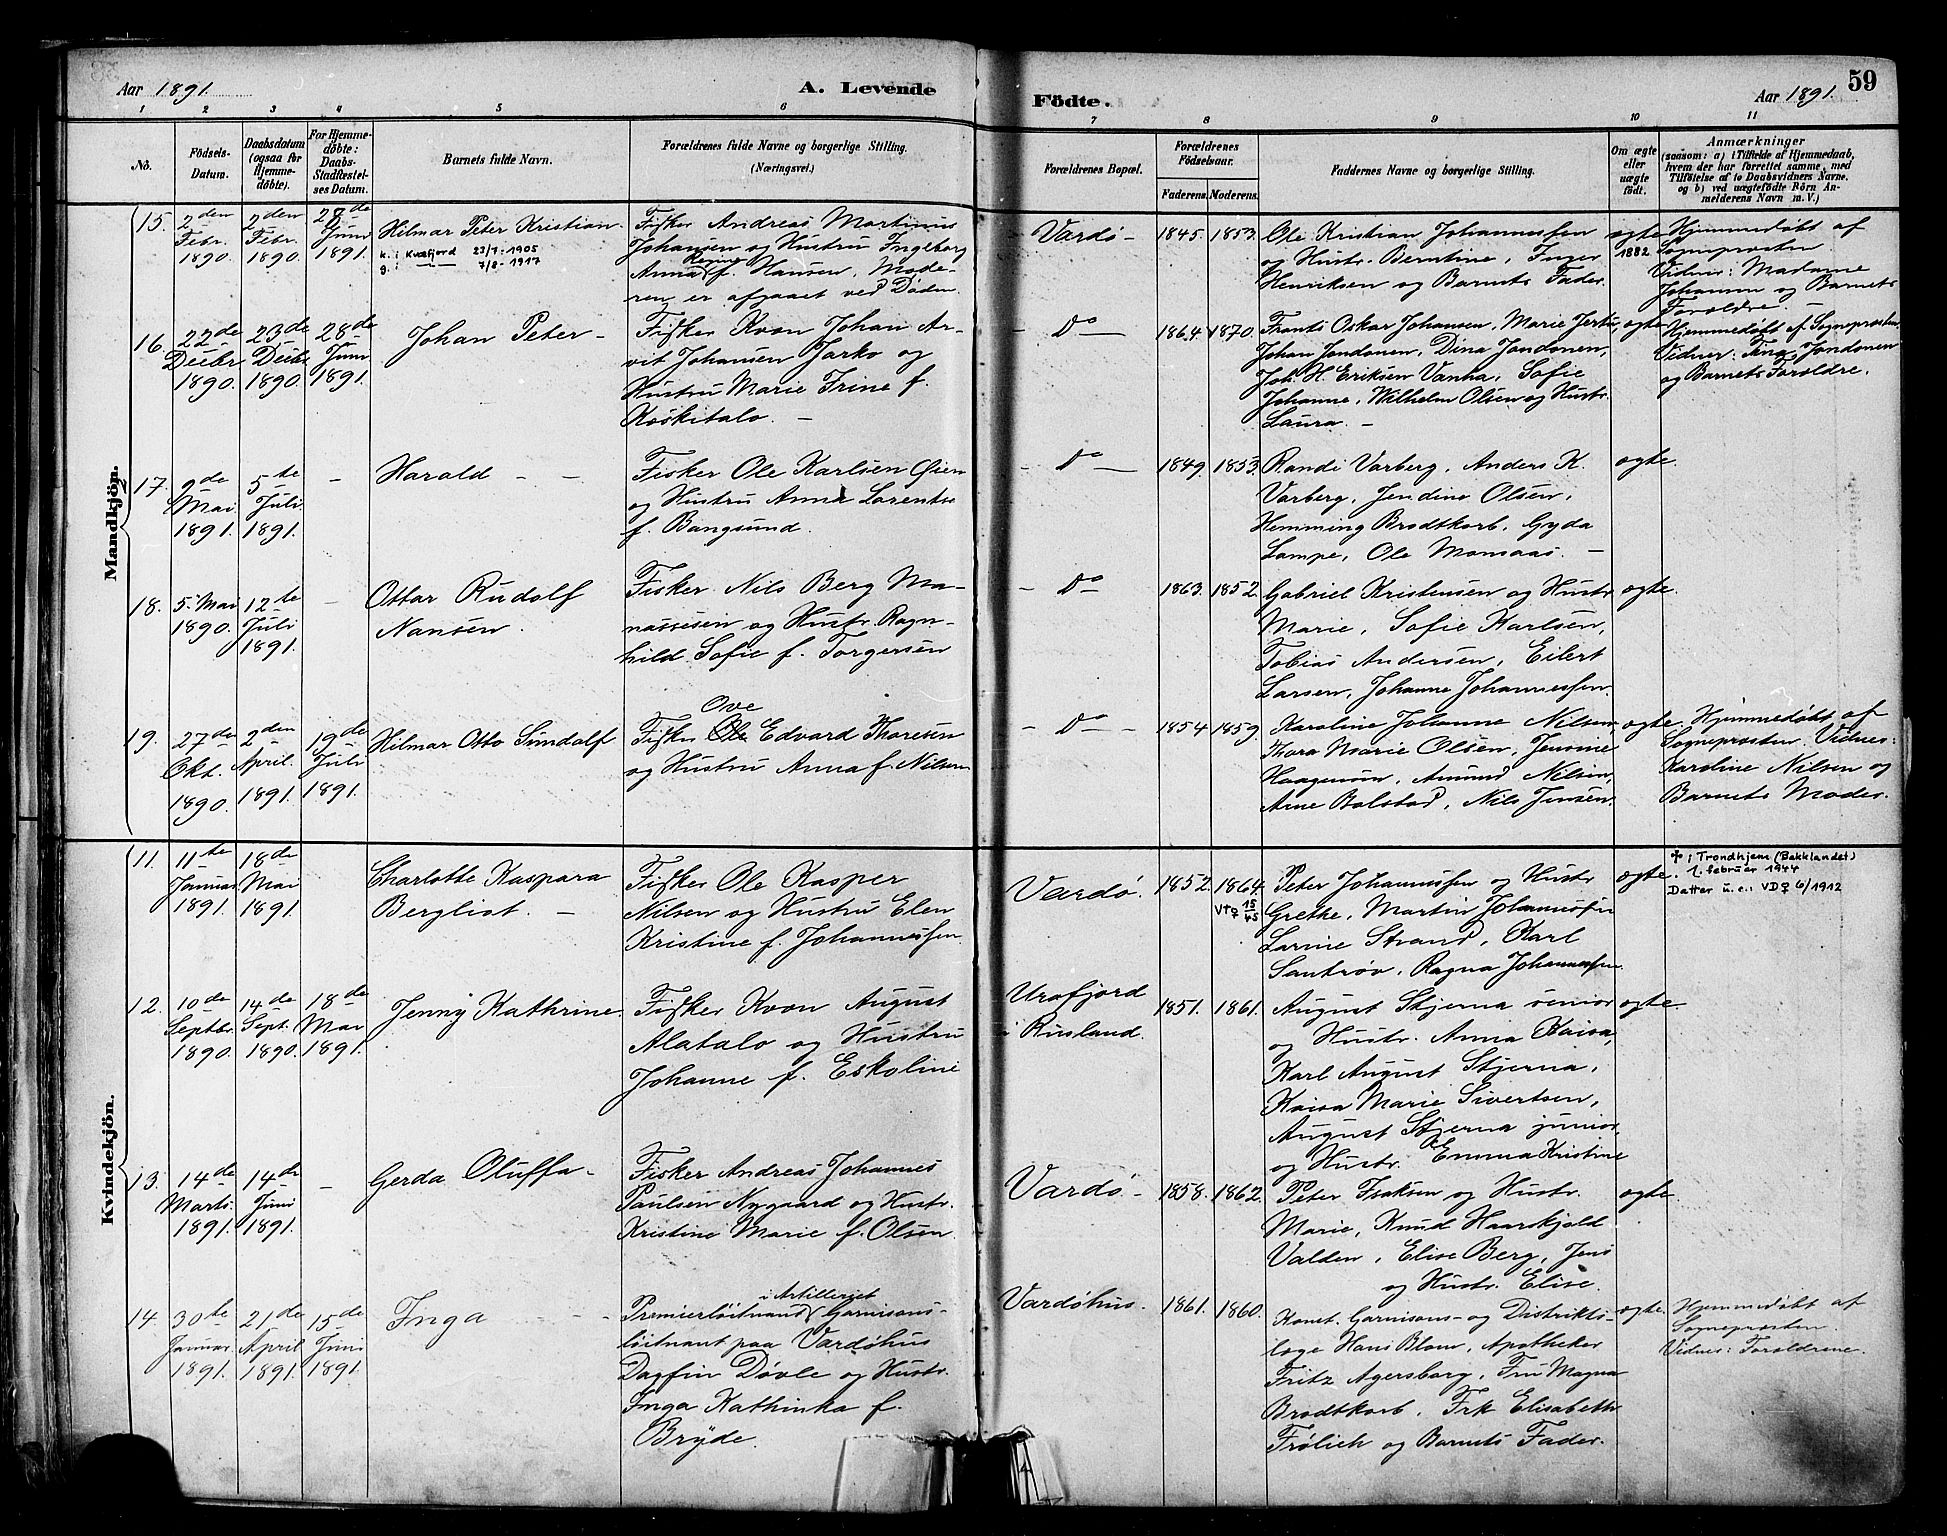 Aar 1891.
A. Levende
Födte.
Aar 1891.
59
1
2
3
4
5
6
7
8
9
10
11
No.
Födsels-
Datum.
Daabsdatum
(ogsaa for
Hjemme-
döbte).
For Hjemme-
döbte:
Daabs-
Stadfæstel-
ses Datum.
Barnets fulde Navn.
Forældrenes fulde Navne og borgerlige Stilling.
(Næringsvei.)
Forældrenes Bopæl.
Forældrenes
Födselsaar.
Faderens.
Moderens.
Faddernes Navne og borgerlige Stilling.
Om ægte
eller
uægte
födt.
Anmærkninger
(saasom: a) i Tilfælde af Hjemmedaab,
hvem der har forrettet samme, med
Tilföielse af to Daabsvidners Navne.
og b) ved uægtefödte Börn An-
melderens Navn m.V.)
Mandkjön.
15.
2den
Febr.
1890.
2den
Febr.
1890.
Juni
1891.
Hilmar Peter Kristian.
k. i Kvæfjord 23/7 1905
7/8 - 1917
Fisker Andreas Martinus
Johansen og Hustru Ingeborg
Anna Regine f. Hansen. Mode-
ren er afgaaet ved Døden.
Vardø -
1845.
1853.
Ole Kristian Johannessen
og Hustr. Berntine, Inger
Henriksen og Barnets Fader.
ægte
1882.
Hjemmedøbt af
Sogneprosten
Vidner: Madame
Johansen og Barnets
Forældre. -
16.
22de
Decbr
1890.
23de
Decbr
1890.
28de
Juni
1891.
Johan Peter -
Fisker Kvæn Johan Ar-
vit Johansen Jarko og
Hustru Marie Irine f.
Koskitalo. -
- Do -
1864.
1870.
Frants Oskar Johansen, Marie
Johan Jondonen, Dina Jondonen,
Joh. H. Eriksen Vanha, Sofie
Johanne, Wilhelm Olsen og Hustr.
Laura. -
ægte.
Hjemmedøbt af Sogneprosten.
Vidner: Jondonen
og Barnets Forældre.
17.
9de
Mai
1891.
5te
Juli
1891.
-
Harald - -
Fisker Ole Karlsen Øien
og Hustru Anna Lorentse
f. Bangsund.
- Do -
1849.
1853.
Randi Varberg, Anders K.
Varberg, Jendine Olsen,
Hemming Brodtkorb, Gyda
Lampe, Ole Momaas. -
ægte.
18.
5. Mai
1890.
12te
Juli
1891.
-
Ottar Rudolf
Nansen.
Fisker Nils Berg Ma-
nassesen og Hustr. Ragn-
hild Sofie f. Torgersen
- Do -
1863.
1852.
Gabriel Kristensen og Hustr
Marie, Sofie Karlsen,
Tobias Andersen, Eilert
Larsen, Johanne Johannessen.
ægte.
19.
27de
Okt.
1890.
2den
April.
1891.
19de
Juli
1891.
Hilmar Otto Sundolf
Ove
Fisker Ole Edvard Thoresen
og Hustru Anna f. Nilsen
- Do -
1854
1859.
Karoline Johanne Nilsen,
Thora Marie Olsen, Jensine
Haagensen, Amund Nilsen,
Arne Bolstad, Nils Jensen.
ægte.
Hjemmedøbt af
Sogneprosten. Vidnes:
Karoline Nilsen og
Barnets Moder.
Kvindekjön.
11.
11te
Januar
1891.
18de
Mai
1891.
Charlotte Kaspara
Bergliot. -
Fisker Ole Kasper
Nilsen og Hustru Elen
Kristine f. Johannessen.
Vardø.
1852.
1864.
V†♀ 15/45
Peter Johannessen og Hustr
Grethe, Martin Johannessen
Larine Strand, Karl
Santrøv, Ragna Johannessen.
ægte.
♰ i Trondhjem (Bakklandet)
1. februar 1944
Datter u. e.: VD♀ 6/1912
12.
10de
Septbr.
1890.
14de
Sept.
1890.
18de
Mai
1891.
Jenny Kathrine.
Fisker Kvæn August
Alatalo og Hustru
Johanne f. Eskoline
Urafjord
i Rusland.
1851.
1861.
August Stjerna senior
og Hustr. Anna Kaisa,
Karl August Stjerna,
Kaisa Marie Sivertsen,
August Stjerna junior,
og Hustr. Emma Kristine
ægte.
13.
14de
Marts.
1891.
14de
Juni
1891.
-
Gerda Oluffa -
Fisker Andreas Johannes
Paulsen Nygaard og Hustr.
Kristine Marie f. Olsen.
Vardø -
1858.
1862.
Peter Isaksen og Hustr.
Marie, Knud Haarskjold
Valden, Elise Berg, Jens
og Hustr. Elise.
ægte
14.
30te
Januar.
1891.
21de
April
1891.
15de
Juni
1891.
Inga - -
i Artilleriet
Premierløitnand Garnisons-
løitnant paa Vardøhus
Dagfin Døvle og Hustr.
Inga Kathinka f.
Bryde.
Vardøhus.
1861.
1860.
Konst. Garnisons- og Distrikts-
læge Hans Blom, Apotheker
Fritz Agersborg, Fru Magna
Brodtkorb, Frk Elisabeth
Frølich og Barnets Fader.
ægte.
Hjemmedøbt af
Sogneprosten.
Vidnes: Forældrene.